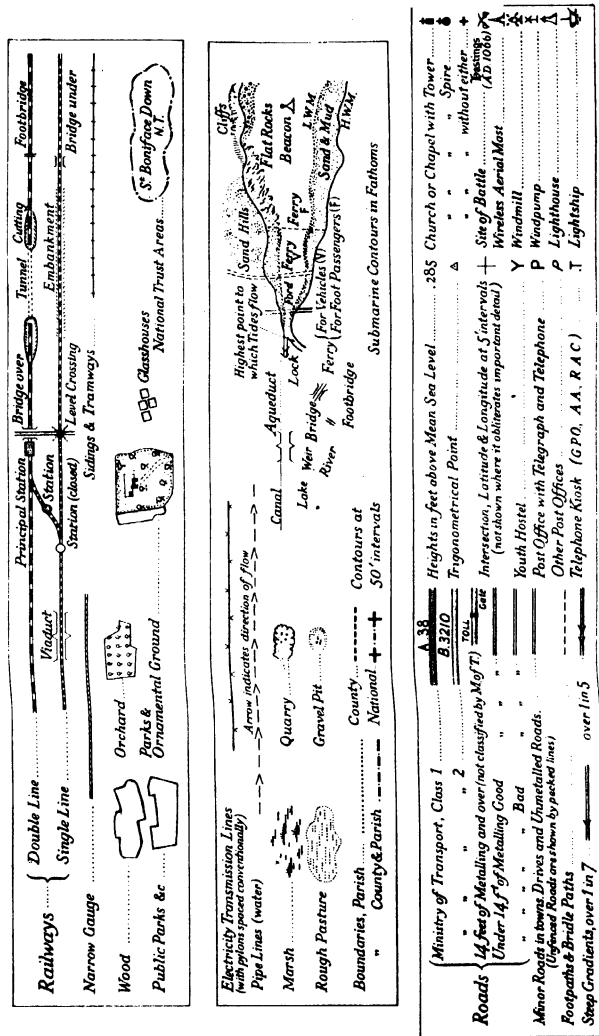 Railways
Double Line
Single Line
Viaduct
Principal Station
Station
Station (closed)
Bridge over
Level Crossing
Tunnel
Cutting
Embankment
Footbridge
Bridge under
Narrow Gauge
Sidings & Tramways
Wood
Orchard
Glasshouses
National Trust Areas
St Boniface Down
N.T.
Public Parks &c
Parks &
Ornamental Ground
Electricity Transmission Lines
(with pylons spaced conventionally)
Pipe Lines (water)
Arrow indicates direction of flow
Marsh
Quarry
Rough Pasture
Gravel Pit
Boundaries, Parish
County
Contours at
" County & Parish
National
50' intervals
Canal
Aqueduct
Lake
Weir
Bridge
" River "
Footbridge
Highest point to
which Tides flow
Lock
Ford
Ferry
Ferry
F
Ferry
For Vehicles (V)
For Foot Passengers (F)
Sand Hills
Cliffs
Flat Rocks
Beacon
L.W.M.
Sand & Mud
H.W.M.
Submarine Contours in Fathoms
Roads
Ministry of Transport, Class 1
A 38
" " " 2
B.3210
14 feet of Metalling and over (not classified by M of T.)
TOLL
Gate
Under 14 ft of Metalling Good " " "
" " " " Bad " " "
Minor Roads in towns, Drives and Unmetalled Roads.
(Unfenced Roads are shown by pecked lines)
Footpaths & Bridle Paths
Steep Gradients, over 1 in 7
over 1 in 5
Heights in feet above Mean Sea Level .285
Trigonometrical Point
Intersection, Latitude & Longitude at 5' intervals
(not shown where it obliterates important detail)
Youth Hostel Y
Post Office with Telegraph and Telephone P
Other Post Offices P
Telephone Kiosk (GPO, AA, RAC) .T
Church or Chapel with Tower
" " " " Spire
" " " " without either
Site of Battle
(AD 1066)
Wireless Aerial Mast
Windmill
Windpump
Lighthouse
Lightship